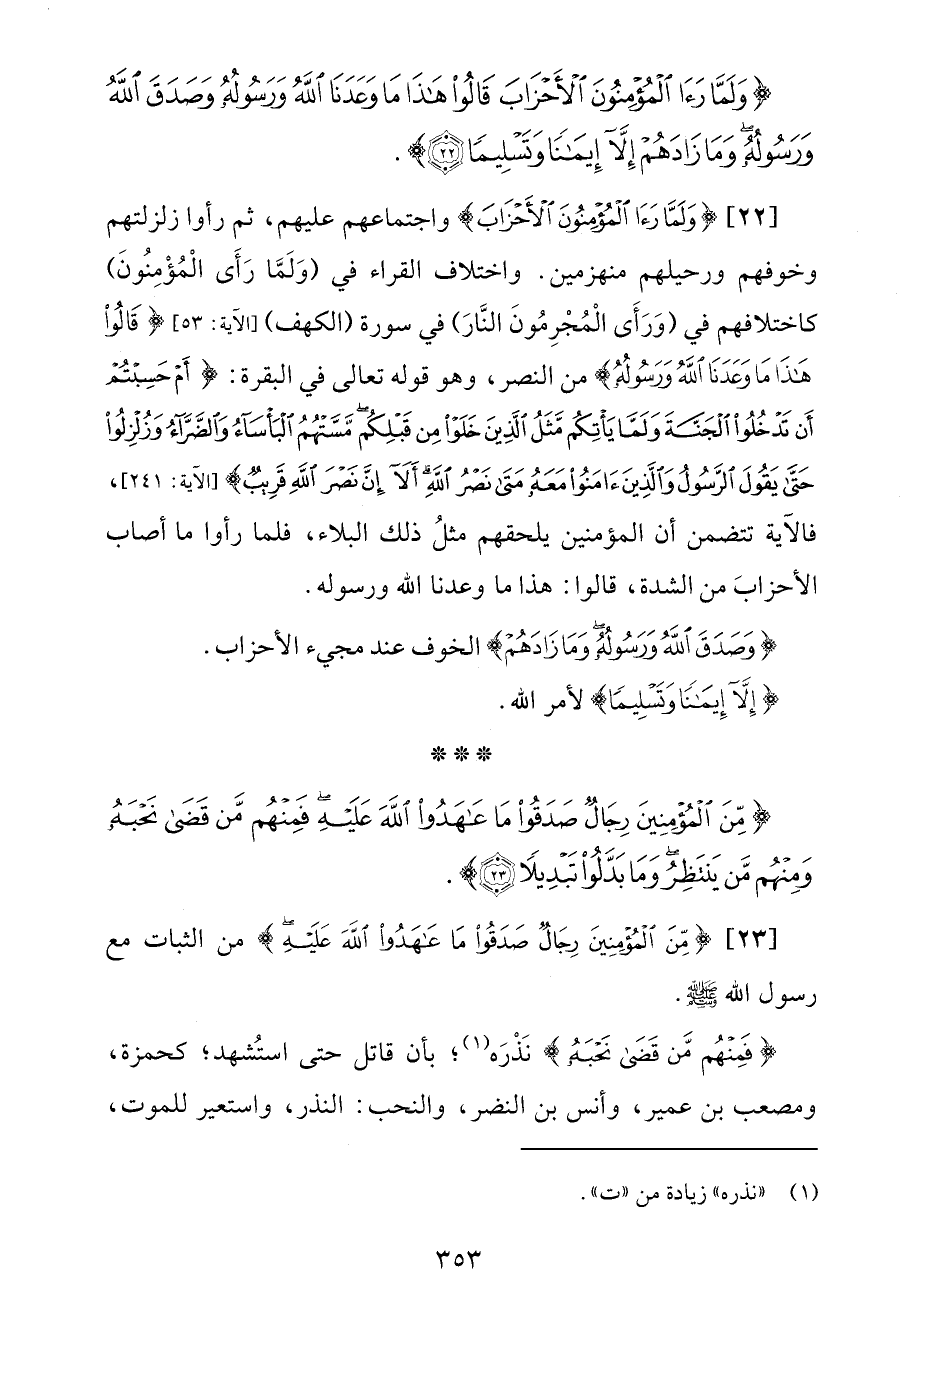 ﴿وَلَمَّا رَءَا الْمُؤْمِنُونَ الْأَحْزَابَ قَالُوا هَٰذَا مَا وَعَدَنَا اللَّهُ وَرَسُولُهُ وَصَدَقَ اللَّهُ
وَرَسُولُهُ ۚ وَمَا زَادَهُمْ إِلَّا إِيمَانًا وَتَسْلِيمًا ٢٢﴾ .
[٢٢] ﴿وَلَمَّا رَءَا الْمُؤْمِنُونَ الْأَحْزَابَ﴾ واجتماعهم عليهم، ثم رأوا زلزلتهم
وخوفهم ورحيلهم منهزمين. واختلاف القراء في (وَلَمَّا رَأَى الْمُؤْمِنُونَ)
كاختلافهم في (وَرَأَى الْمُجْرِمُونَ النَّارَ) في سورة (الكهف) [الآية: ٥٣] ﴿قَالُوا
هَٰذَا مَا وَعَدَنَا اللَّهُ وَرَسُولُهُ﴾ من النصر، وهو قوله تعالى في البقرة: ﴿أَمْ حَسِبْتُمْ
أَن تَدْخُلُوا الْجَنَّةَ وَلَمَّا يَأْتِكُم مَّثَلُ الَّذِينَ خَلَوْا مِن قَبْلِكُم ۖ مَّسَّتْهُمُ الْبَأْسَاءُ وَالضَّرَّاءُ وَزُلْزِلُوا
حَتَّىٰ يَقُولَ الرَّسُولُ وَالَّذِينَ ءَامَنُوا مَعَهُ مَتَىٰ نَصْرُ اللَّهِ ۗ أَلَا إِنَّ نَصْرَ اللَّهِ قَرِيبٌ﴾ [الآية: ٢٤١]،
فالآية تتضمن أن المؤمنين يلحقهم مثلُ ذلك البلاء، فلما رأوا ما أصاب
الأحزابَ من الشدة، قالوا: هذا ما وعدنا الله ورسوله.
﴿وَصَدَقَ اللَّهُ وَرَسُولُهُ ۚ وَمَا زَادَهُمْ﴾ الخوف عند مجيء الأحزاب.
﴿إِلَّا إِيمَانًا وَتَسْلِيمًا﴾ لأمر الله.
* * *
﴿مِّنَ الْمُؤْمِنِينَ رِجَالٌ صَدَقُوا مَا عَاهَدُوا اللَّهَ عَلَيْهِ ۖ فَمِنْهُم مَّن قَضَىٰ نَحْبَهُ
وَمِنْهُم مَّن يَنتَظِرُ ۖ وَمَا بَدَّلُوا تَبْدِيلًا ٢٣﴾ .
[٢٣] ﴿مِّنَ الْمُؤْمِنِينَ رِجَالٌ صَدَقُوا مَا عَاهَدُوا اللَّهَ عَلَيْهِ ۖ﴾ من الثبات مع
رسول الله ﷺ.
﴿فَمِنْهُم مَّن قَضَىٰ نَحْبَهُ﴾ نَذْرَه(١)؛ بأن قاتل حتى استُشهد؛ كحمزة،
ومصعب بن عمير، وأنس بن النضر، والنحب: النذر، واستعير للموت،
(١) «نذره» زيادة من «ت».
٣٥٣